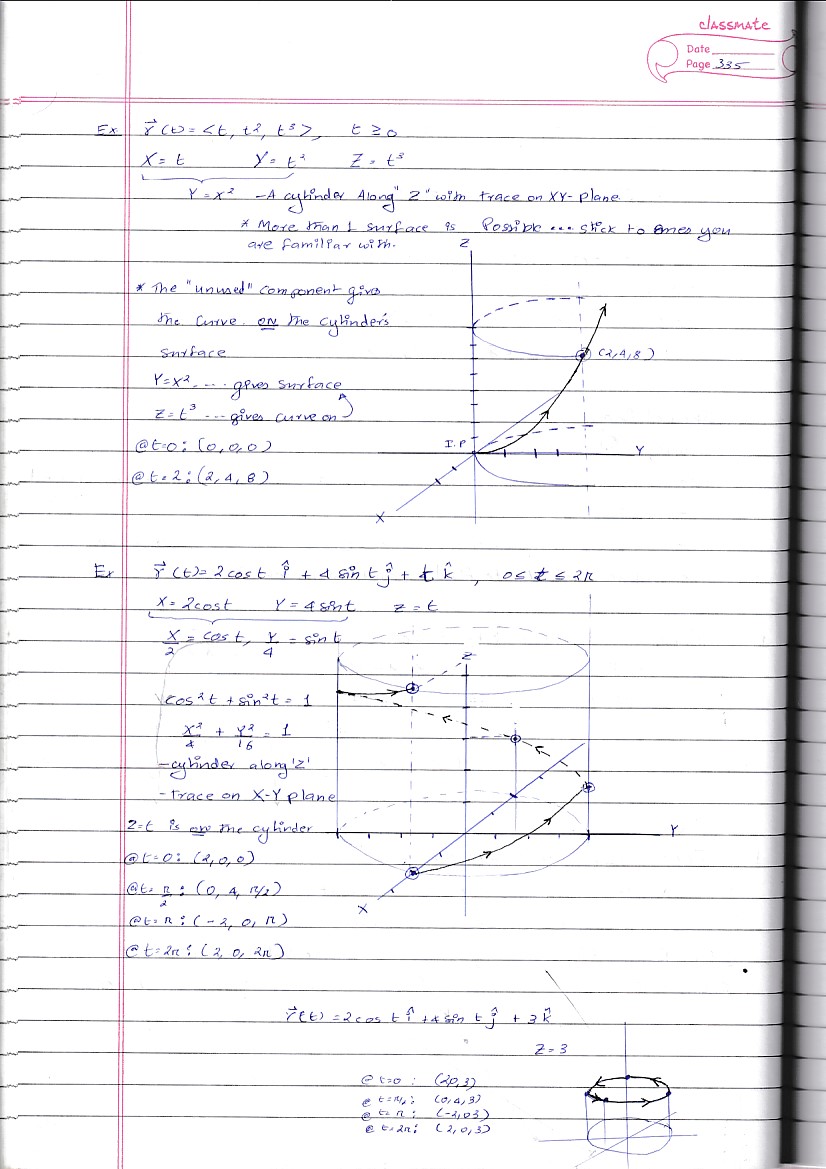 classmate
Date
Page 335
Ex r⃗(t) = <t, t², t³>, t ≥ 0
X = t Y = t² Z = t³
Y = x² - A cylinder Along "Z" with trace on XY-plane
* More than 1 surface is Possible ... stick to ones you
are familiar with.
* The "unused" component gives
the curve on the cylinder's
surface
Y = x² .... gives surface
Z = t³ ... gives curve on
@ t=0: (0,0,0)
@ t=2: (2,4,8)
Z
(2,4,8)
I.P
Y
X
Ex r⃗(t) = 2cost î + 4 sin t ĵ + t k̂, 0 ≤ t ≤ 2π
X = 2cost Y = 4sint z = t
X/2 = cost, Y/4 = sint
cos²t + sin²t = 1
X²/4 + Y²/16 = 1
- cylinder along 'z'
- trace on X-Y plane
Z=t is on the cylinder
@ t=0: (2,0,0)
@ t=π/2: (0, 4, π/2)
@ t=π: (-2, 0, π)
@ t=2π: (2, 0, 2π)
Z
Y
X
r⃗(t) = 2cos t î + 4 sin t ĵ + 3 k̂
Z=3
@ t=0: (20,3)
@ t=π/2: (0,4,3)
@ t=π: (-2,03)
@ t=2π: (2,0,3)